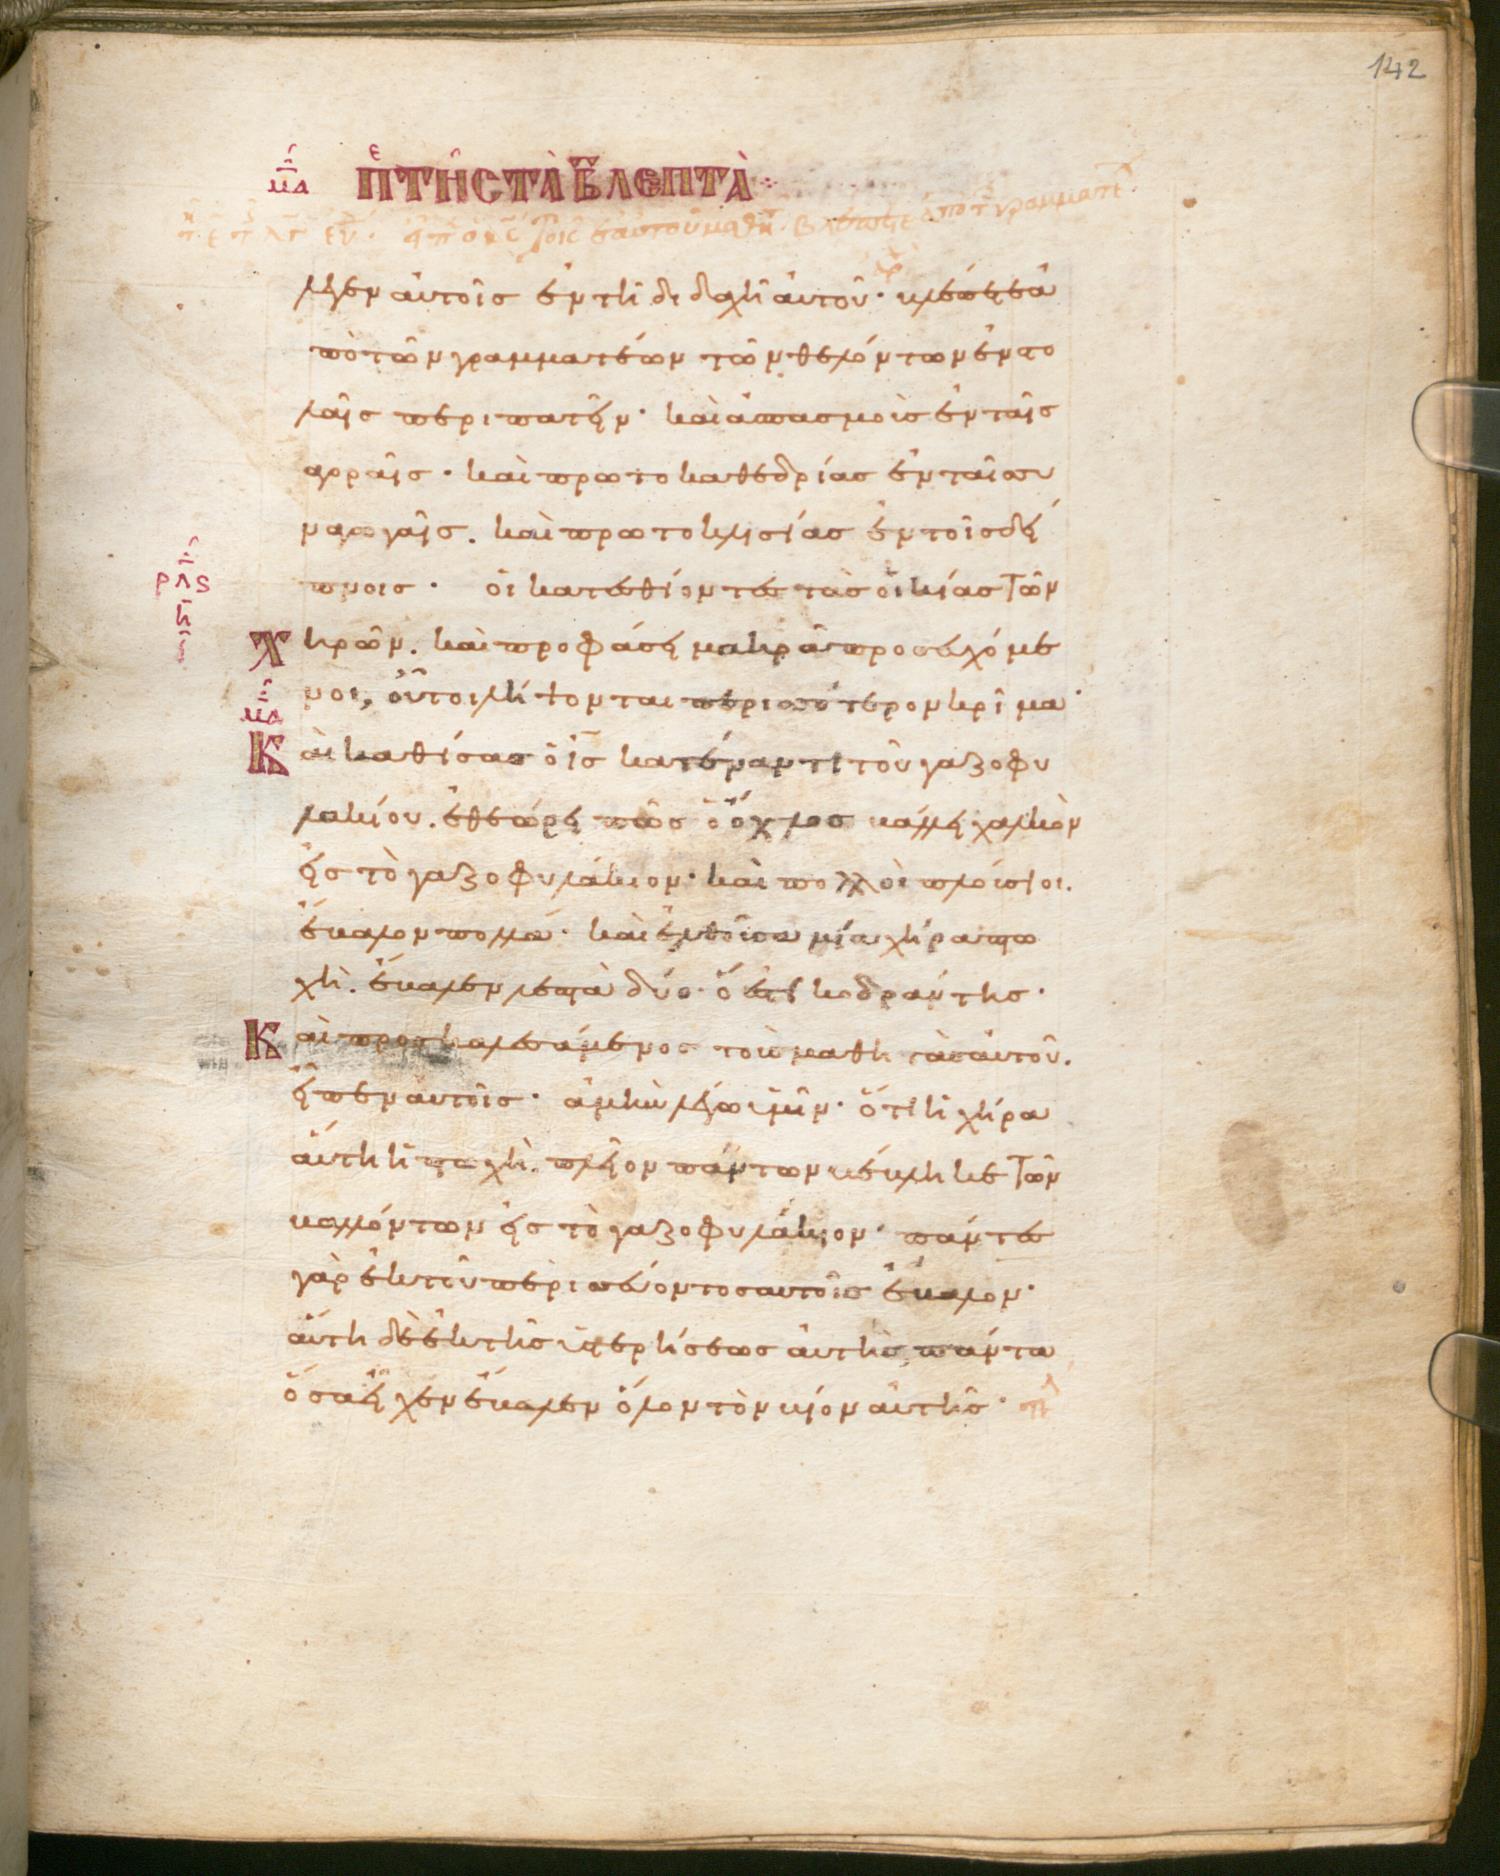 142
μα
πε τῆς τὰ β λεπτά
εἶπ ὁ κς τοῖς ἑαυτοῦ μαθη βλέπετε ἀπὸ τ γραμματε
λεγεν αὐτοῖς ἐν τῆ διδαχῆ αὐτοῦ· βλέπετε ἀ
πὸ τῶν γραμματέων τῶν θελόντων ἐν στο
λαῖς περιπατεῖν· καὶ ἀσπασμοὺς ἐν ταῖς
ἀγοραῖς· καὶ πρωτοκαθεδρίας ἐν ταῖς συ
ναγωγαῖς. καὶ πρωτοκλισίας ἐν τοῖς δεί
πνοις· οἱ κατεσθίοντες τὰς οἰκίας τῶν
ρλς
η
ι
χηρῶν. καὶ προφάσει μακρὰ προσευχόμε
νοι, οὗτοι λήψονται περισσότερον κρῖμα·
μα
Καὶ καθίσας ὁ ις κατέναντι τοῦ γαζοφυ
λακίου. ἐθεώρει πῶς ὁ ὄχλος βάλλει χαλκὸν
εἰς τὸ γαζοφυλάκιον· καὶ πολλοὶ πλούσιοι.
ἔβαλον πολλά· καὶ ἐλθοῦσα μία χήρα πτω
χὴ. ἔβαλεν λεπτὰ δύο· ὅ ἐστι κοδράντης·
Καὶ προσκαλεσάμενος τοὺς μαθητὰς αὐτοῦ.
εἶπεν αὐτοῖς· ἀμὴν λέγω ὑμῖν· ὅτι ἡ χήρα
αὕτη ἡ πτωχὴ. πλεῖον πάντων βέβληκε τῶν
βαλλόντων εἰς τὸ γαζοφυλάκιον· πάντες
γὰρ ἐκ τοῦ περισσεύοντος αὐτοῖς ἔβαλον·
αὕτη δὲ ἐκ τῆς ὑστερήσεως αὐτῆς πάντα
ὅσα εἶχεν ἔβαλεν ὅλον τὸν βίον αὐτῆς·